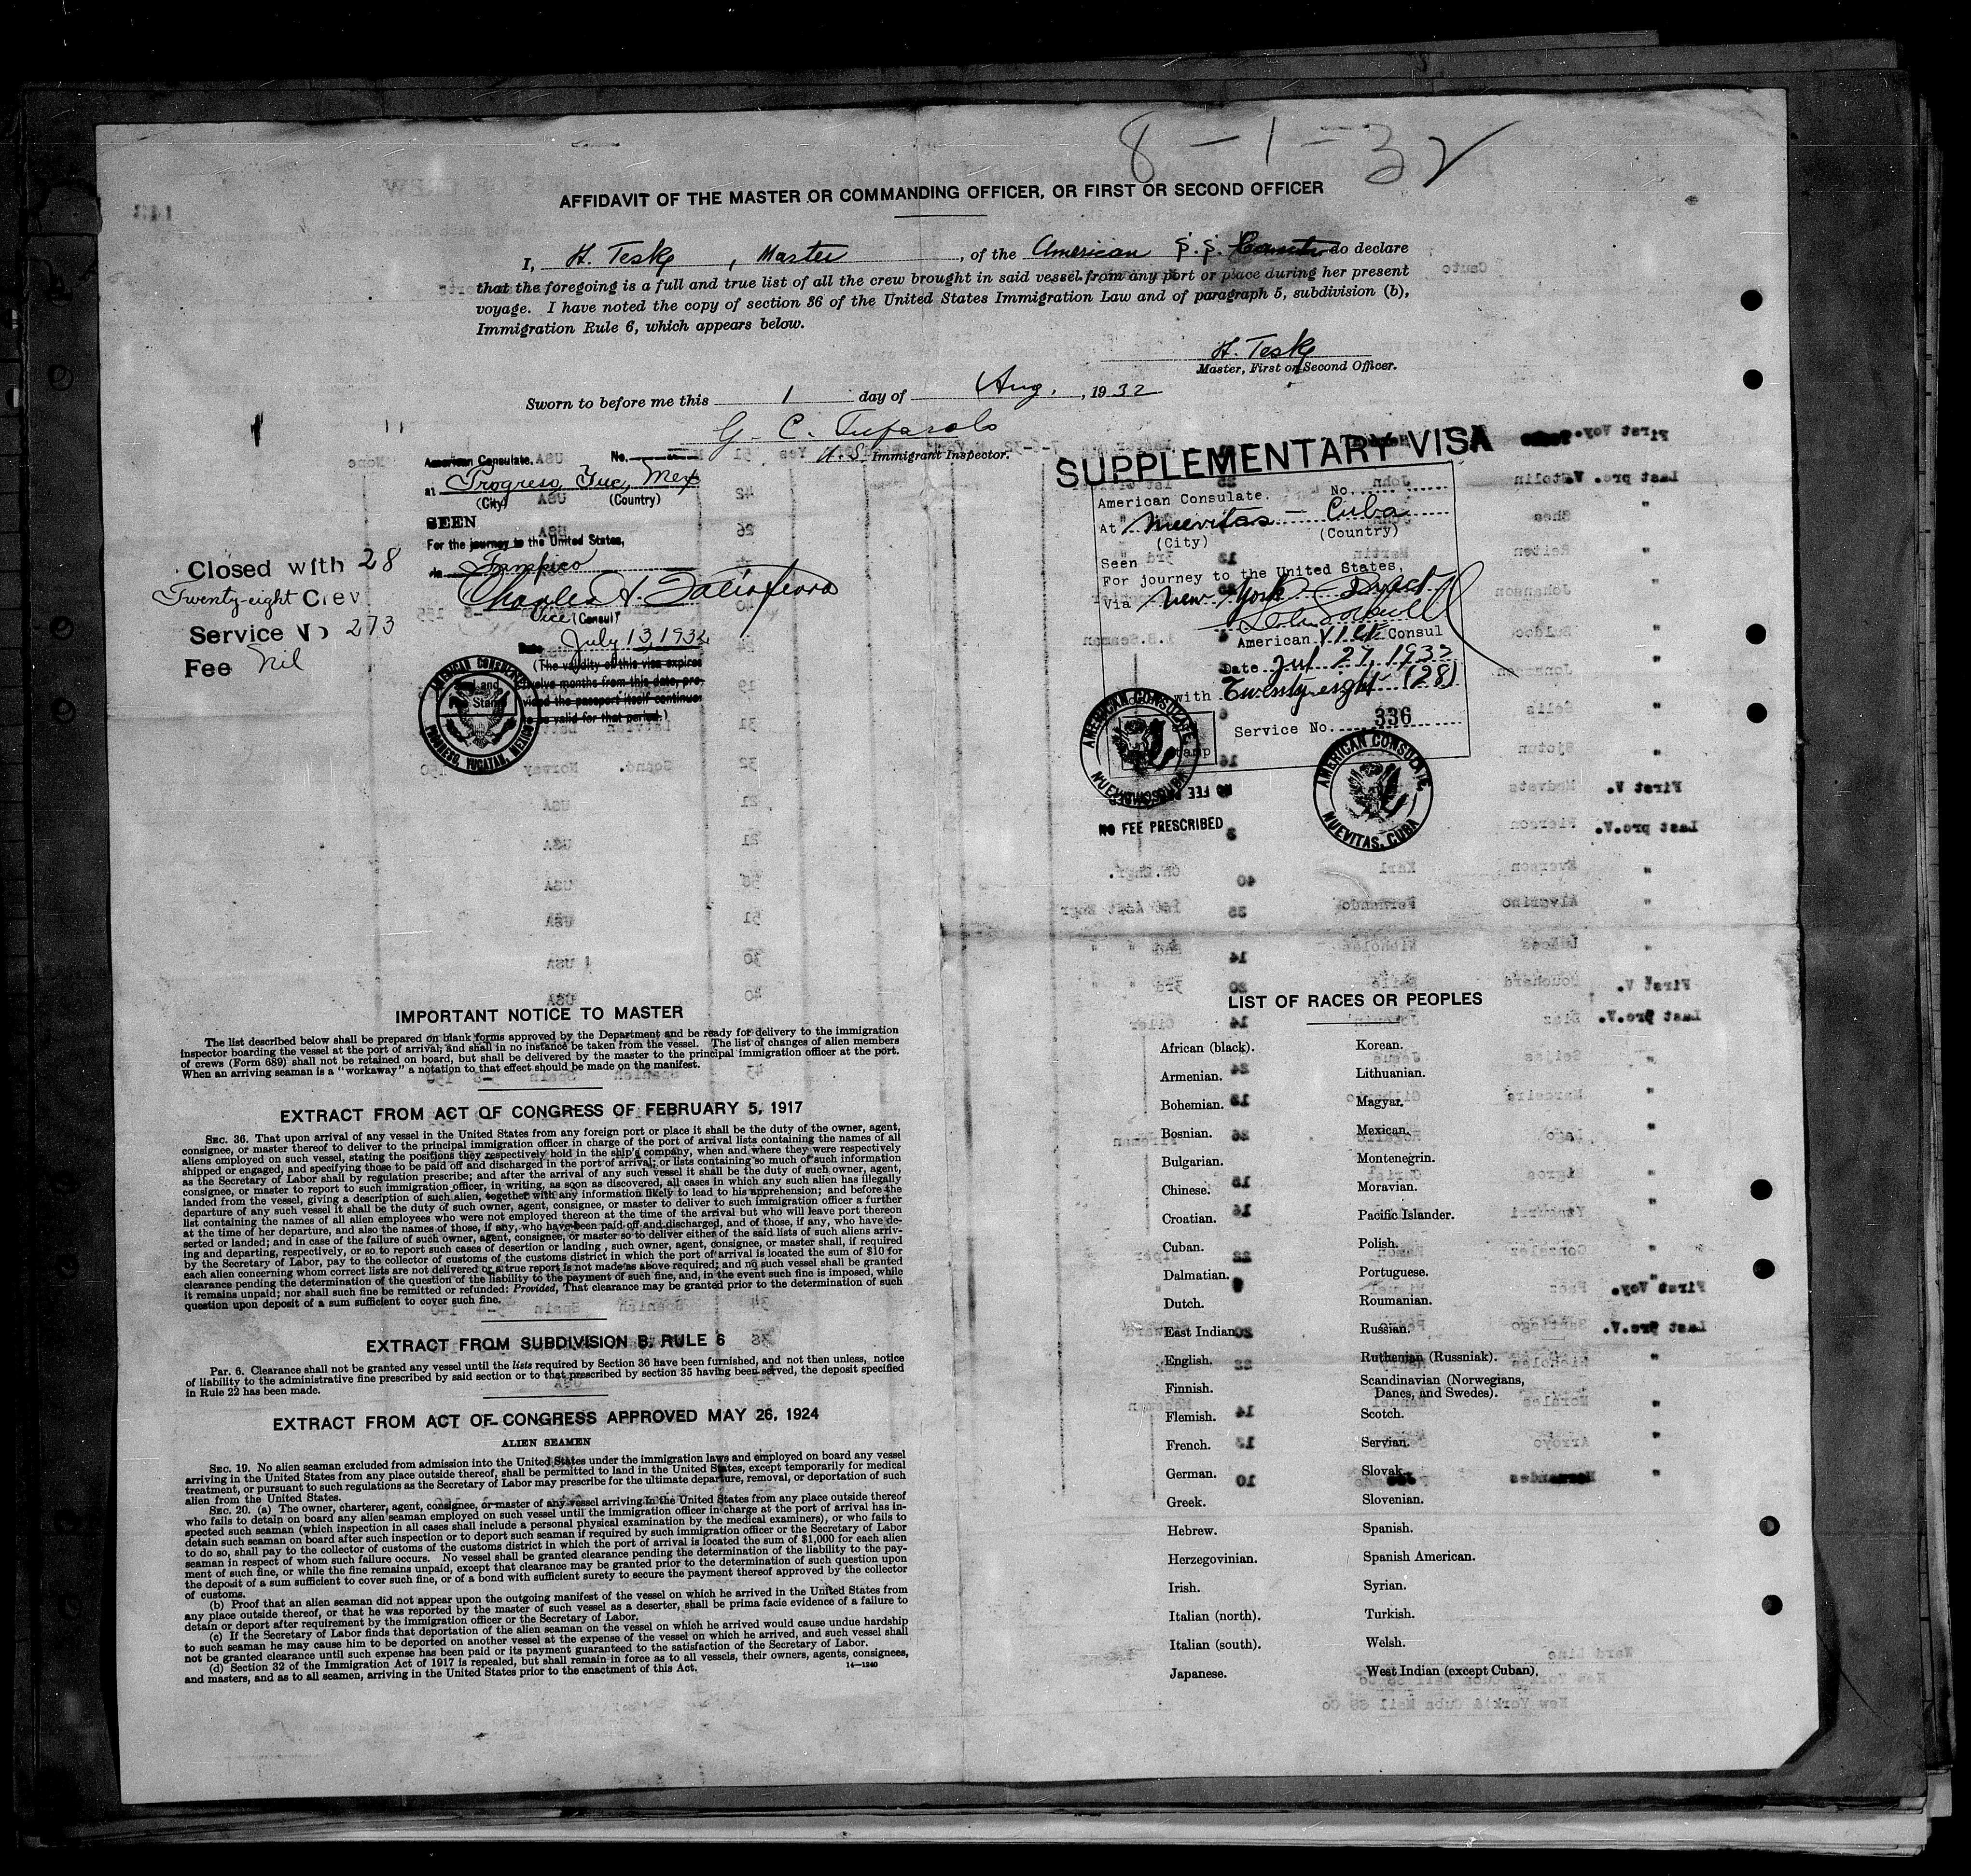 8-1-32
AFFIDAVIT OF THE MASTER OR COMMANDING OFFICER, OR FIRST OR SECOND OFFICER
I, H. Teske, Master, of the American S.S. Cauto do declare
that the foregoing is a full and true list of all the crew brought in said vessel from any port or place during her present
voyage. I have noted the copy of section 36 of the United States Immigration Law and of paragraph 5, subdivision (b),
Immigration Rule 6, which appears below.
H. Teske
Master, First or Second Officer.
Sworn to before me this 1 day of Aug., 1932
G. C.
U.S. Immigrant Inspector.
American Consulate. No.
at Progreso, Yuc, Mex
(City) (Country)
SEEN
For the journey to the United States,
via Tampico
Charles H. Taliaferro
Vice (Consul)
Date July 13, 1932
(The validity of this visa expires
twelve months from this date, pro-
vided the passport itself continues
to be valid for that period.)
Closed with 28
Twenty-eight Crew
Service No 273
Fee Nil
AMERICAN CONSULATE
PROGRESO, YUCATAN, MEXICO
SUPPLEMENTARY VISA
American Consulate. No.
At Nuevitas - Cuba
(City) (Country)
Seen
For journey to the United States,
Via New York Direct
American Vice Consul
Date Jul 27, 1932
with Twenty-eight (28)
Service No. 336
AMERICAN CONSULATE
NUEVITAS, CUBA
AMERICAN CONSULATE,
NUEVITAS, CUBA
NO FEE PRESCRIBED
IMPORTANT NOTICE TO MASTER
The list described below shall be prepared on blank forms approved by the Department and be ready for delivery to the immigration
inspector boarding the vessel at the port of arrival; and shall in no instance be taken from the vessel. The list of changes of alien members
of crews (Form 689) shall not be retained on board, but shall be delivered by the master to the principal immigration officer at the port.
When an arriving seaman is a "workaway" a notation to that effect should be made on the manifest.
EXTRACT FROM ACT OF CONGRESS OF FEBRUARY 5, 1917
SEC. 36. That upon arrival of any vessel in the United States from any foreign port or place it shall be the duty of the owner, agent,
consignee, or master thereof to deliver to the principal immigration officer in charge of the port of arrival lists containing the names of all
aliens employed on such vessel, stating the positions they respectively hold in the ship's company, when and where they were respectively
shipped or engaged, and specifying those to be paid off and discharged in the port of arrival; or lists containing so much of such information
as the Secretary of Labor shall by regulation prescribe; and after the arrival of any such vessel it shall be the duty of such owner, agent,
consignee, or master to report to such immigration officer, in writing, as soon as discovered, all cases in which any such alien has illegally
landed from the vessel, giving a description of such alien, together with any information likely to lead to his apprehension; and before the
departure of any such vessel it shall be the duty of such owner, agent, consignee, or master to deliver to such immigration officer a further
list containing the names of all alien employees who were not employed thereon at the time of the arrival but who will leave port thereon
at the time of her departure, and also the names of those, if any, who have been paid off and discharged, and of those, if any, who have de-
serted or landed; and in case of the failure of such owner, agent, consignee, or master so to deliver either of the said lists of such aliens arriv-
ing and departing, respectively, or so to report such cases of desertion or landing, such owner, agent, consignee, or master shall, if required
by the Secretary of Labor, pay to the collector of customs of the customs district in which the port of arrival is located the sum of $10 for
each alien concerning whom correct lists are not delivered or a true report is not made as above required; and no such vessel shall be granted
clearance pending the determination of the question of the liability to the payment of such fine, and, in the event such fine is imposed, while
it remains unpaid; nor shall such fine be remitted or refunded: Provided, That clearance may be granted prior to the determination of such
question upon deposit of a sum sufficient to cover such fine.
EXTRACT FROM SUBDIVISION B, RULE 6
Par. 6. Clearance shall not be granted any vessel until the lists required by Section 36 have been furnished, and not then unless, notice
of liability to the administrative fine prescribed by said section or to that prescribed by section 35 having been served, the deposit specified
in Rule 22 has been made.
EXTRACT FROM ACT OF CONGRESS APPROVED MAY 26, 1924
ALIEN SEAMEN
SEC. 19. No alien seaman excluded from admission into the United States under the immigration laws and employed on board any vessel
arriving in the United States from any place outside thereof, shall be permitted to land in the United States, except temporarily for medical
treatment, or pursuant to such regulations as the Secretary of Labor may prescribe for the ultimate departure, removal, or deportation of such
alien from the United States.
SEC. 20. (a) The owner, charterer, agent, consignee, or master of any vessel arriving in the United States from any place outside thereof
who fails to detain on board any alien seaman employed on such vessel until the immigration officer in charge at the port of arrival has in-
spected such seaman (which inspection in all cases shall include a personal physical examination by the medical examiners), or who fails to
detain such seaman on board after such inspection or to deport such seaman if required by such immigration officer or the Secretary of Labor
to do so, shall pay to the collector of customs of the customs district in which the port of arrival is located the sum of $1,000 for each alien
seaman in respect of whom such failure occurs. No vessel shall be granted clearance pending the determination of the liability to the pay-
ment of such fine, or while the fine remains unpaid, except that clearance may be granted prior to the determination of such question upon
the deposit of a sum sufficient to cover such fine, or of a bond with sufficient surety to secure the payment thereof approved by the collector
of customs.
(b) Proof that an alien seaman did not appear upon the outgoing manifest of the vessel on which he arrived in the United States from
any place outside thereof, or that he was reported by the master of such vessel as a deserter, shall be prima facie evidence of a failure to
detain or deport after requirement by the immigration officer or the Secretary of Labor.
(c) If the Secretary of Labor finds that deportation of the alien seaman on the vessel on which he arrived would cause undue hardship
to such seaman he may cause him to be deported on another vessel at the expense of the vessel on which he arrived, and such vessel shall
not be granted clearance until such expense has been paid or its payment guaranteed to the satisfaction of the Secretary of Labor.
(d) Section 32 of the Immigration Act of 1917 is repealed, but shall remain in force as to all vessels, their owners, agents, consignees,
and masters, and as to all seamen, arriving in the United States prior to the enactment of this Act.
14—1240
LIST OF RACES OR PEOPLES
African (black). Korean.
Armenian. Lithuanian.
Bohemian. Magyar.
Bosnian. Mexican.
Bulgarian. Montenegrin.
Chinese. Moravian.
Croatian. Pacific Islander.
Cuban. Polish.
Dalmatian. Portuguese.
Dutch. Roumanian.
East Indian. Russian.
English. Ruthenian (Russniak).
Finnish. Scandinavian (Norwegians,
Danes, and Swedes).
Flemish. Scotch.
French. Servian.
German. Slovak.
Greek. Slovenian.
Hebrew. Spanish.
Herzegovinian. Spanish American.
Irish. Syrian.
Italian (north). Turkish.
Italian (south). Welsh.
Japanese. West Indian (except Cuban).